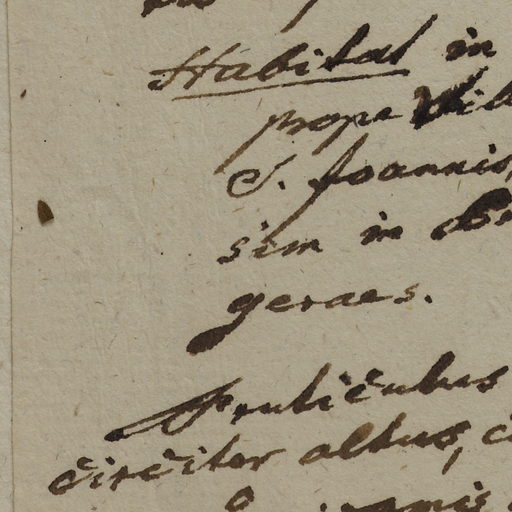 Habitat in
prope
S. Joannis,
sim in
geraes.
Fruticulus
circiter altus,